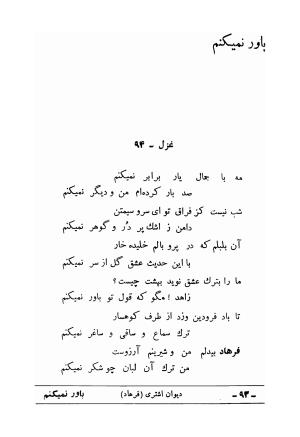 باور نمیکنم
غزل - ۹۴
مه با جمال یار برابر نمیکنم
صد بار کرده‌ام من و دیگر نمیکنم
شب نیست کز فراق تو ای سرو سیمتن
دامن ز اشك پر دُر و گوهر نمیکنم
آن بلبلم که در پرو بالم خلیده خار
با این حدیث عشق گل از سر نمیکنم
ما را بترك عشق نوید بهشت چیست؟
زاهد! مگو که قول تو باور نمیکنم
تا باد فرودین وزد از طرف کوهسار
ترك سماع و ساقی و ساغر نمیکنم
فرهاد بیدلم من و شیرینم آرزوست
من ترك آن لبان چو شکر نمیکنم
- ۹۳ -
دیوان اشتری (فرهاد)
باور نمیکنم